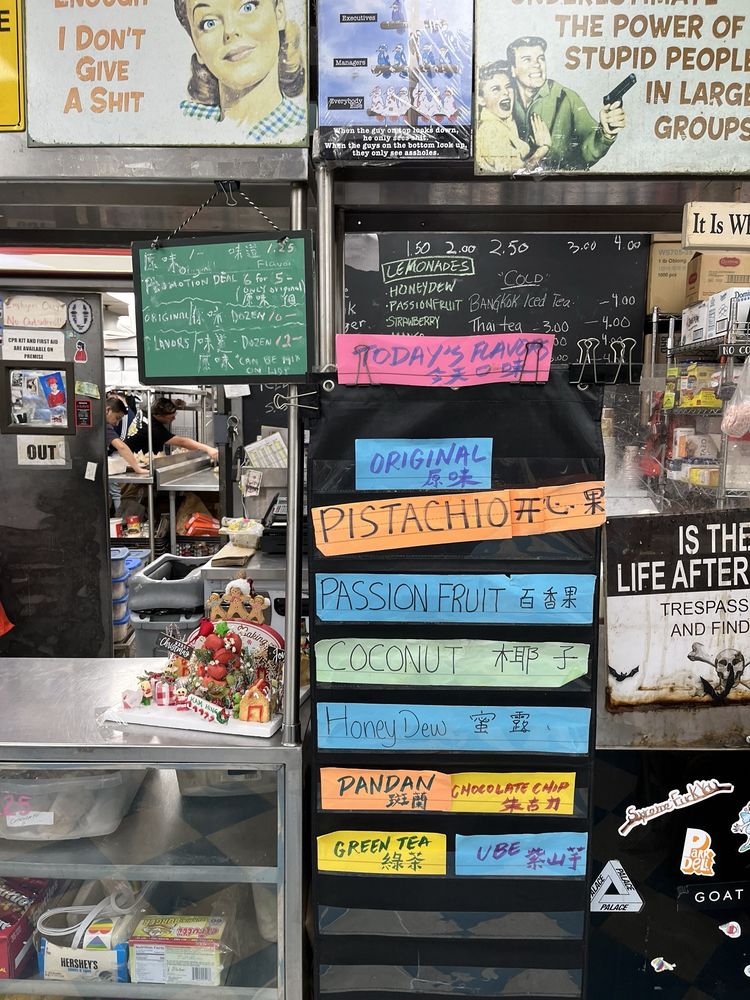 ENOUGH
I DON'T
GIVE
A SHIT
Executives
Managers
Everybody
Else
When the guy on top looks down,
he only sees shit.
When the guys on the bottom look up,
they only see assholes.
UNDERESTIMATE
THE POWER OF
STUPID PEOPLE
IN LARGE
GROUPS
It Is
原味 1- 味道 1.25
Original Flavor
PROMOTION DEAL 6 for 5-
(only original
原味
ORIGINAL/原味 DOZEN 10-
FLAVORS/味道 DOZEN 12-
原味 CAN BE MIX
ON LIST
1.50 2.00 2.50 3.00 4.00
LEMONADES
HONEYDEW
PASSIONFRUIT
STRAWBERRY
"COLD"
BANGKOK Iced Tea -4.00
Thai tea -3.00 -4.00
TODAY'S FLAVORS
今天口味
ORIGINAL
原味
PISTACHIO 开心果
PASSION FRUIT 百香果
COCONUT 椰子
HoneyDew 蜜露
PANDAN
斑蘭
CHOCOLATE CHIP
朱古力
GREEN TEA
綠茶
UBE 紫山芋
Employees Only
No Outsiders!
CPR KIT AND FIRST AID
ARE AVAILABLE ON
PREMISE
OUT
IS THE
LIFE AFTER
TRESPASS
AND FIND
NO
PALACE
PALACE
PARK
DELI
GOAT
25
HERSHEY'S